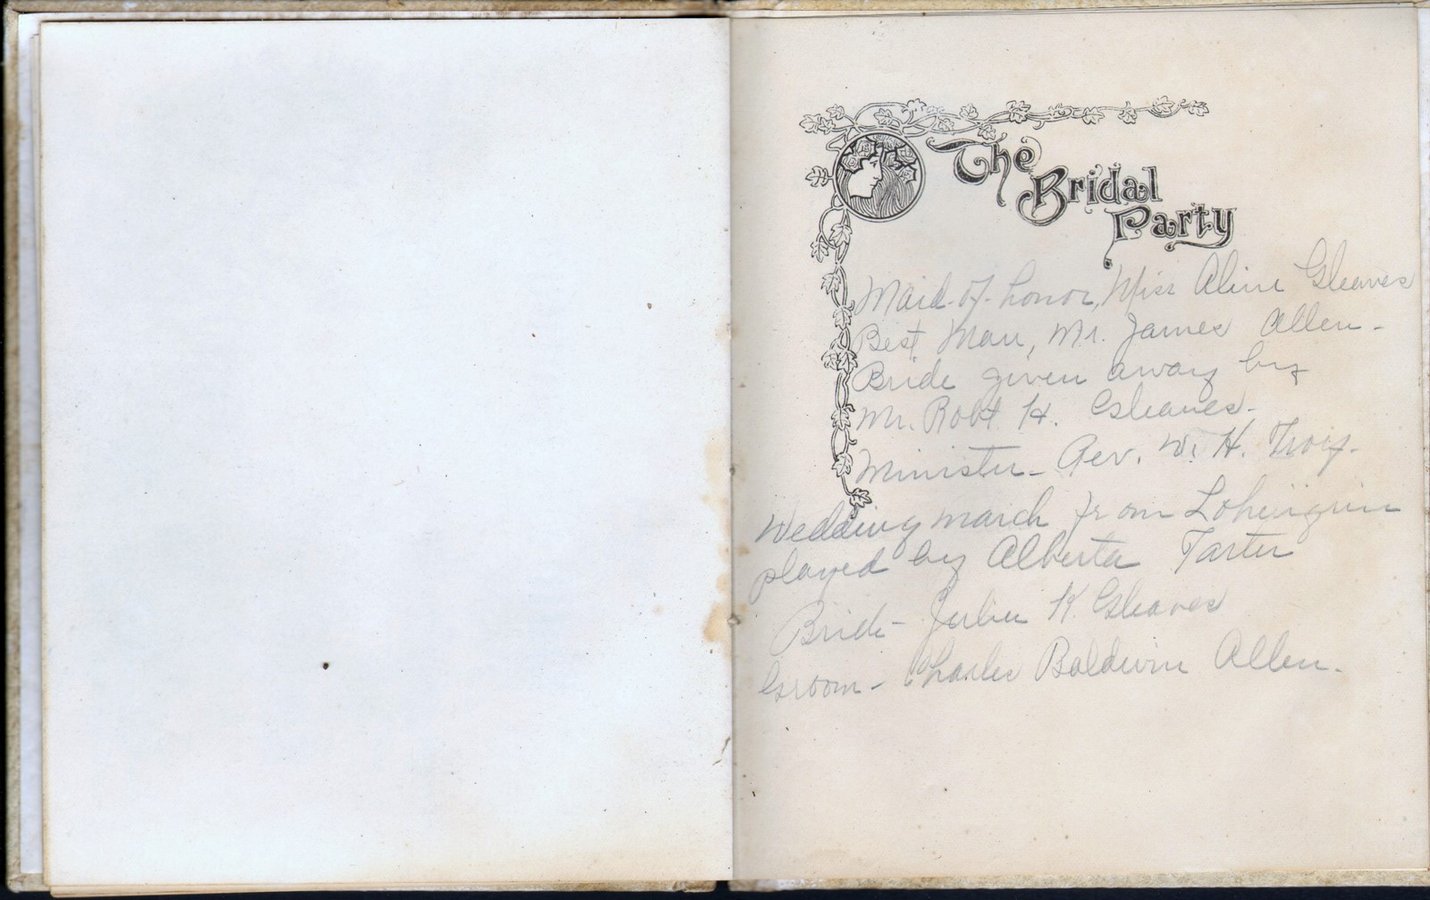 The
Bridal
Party
Maid-of-honor, Miss Aline Gleaves
Best Man, Mr. James Allen-
Bride given away by
Mr. Robt H. Gleaves-
Minister- Rev. W. H. Troy-
Wedding march from Lohengrin
played by Alberta Tarter
Bride- K Gleaves
Groom- Charles Baldwin Allen.